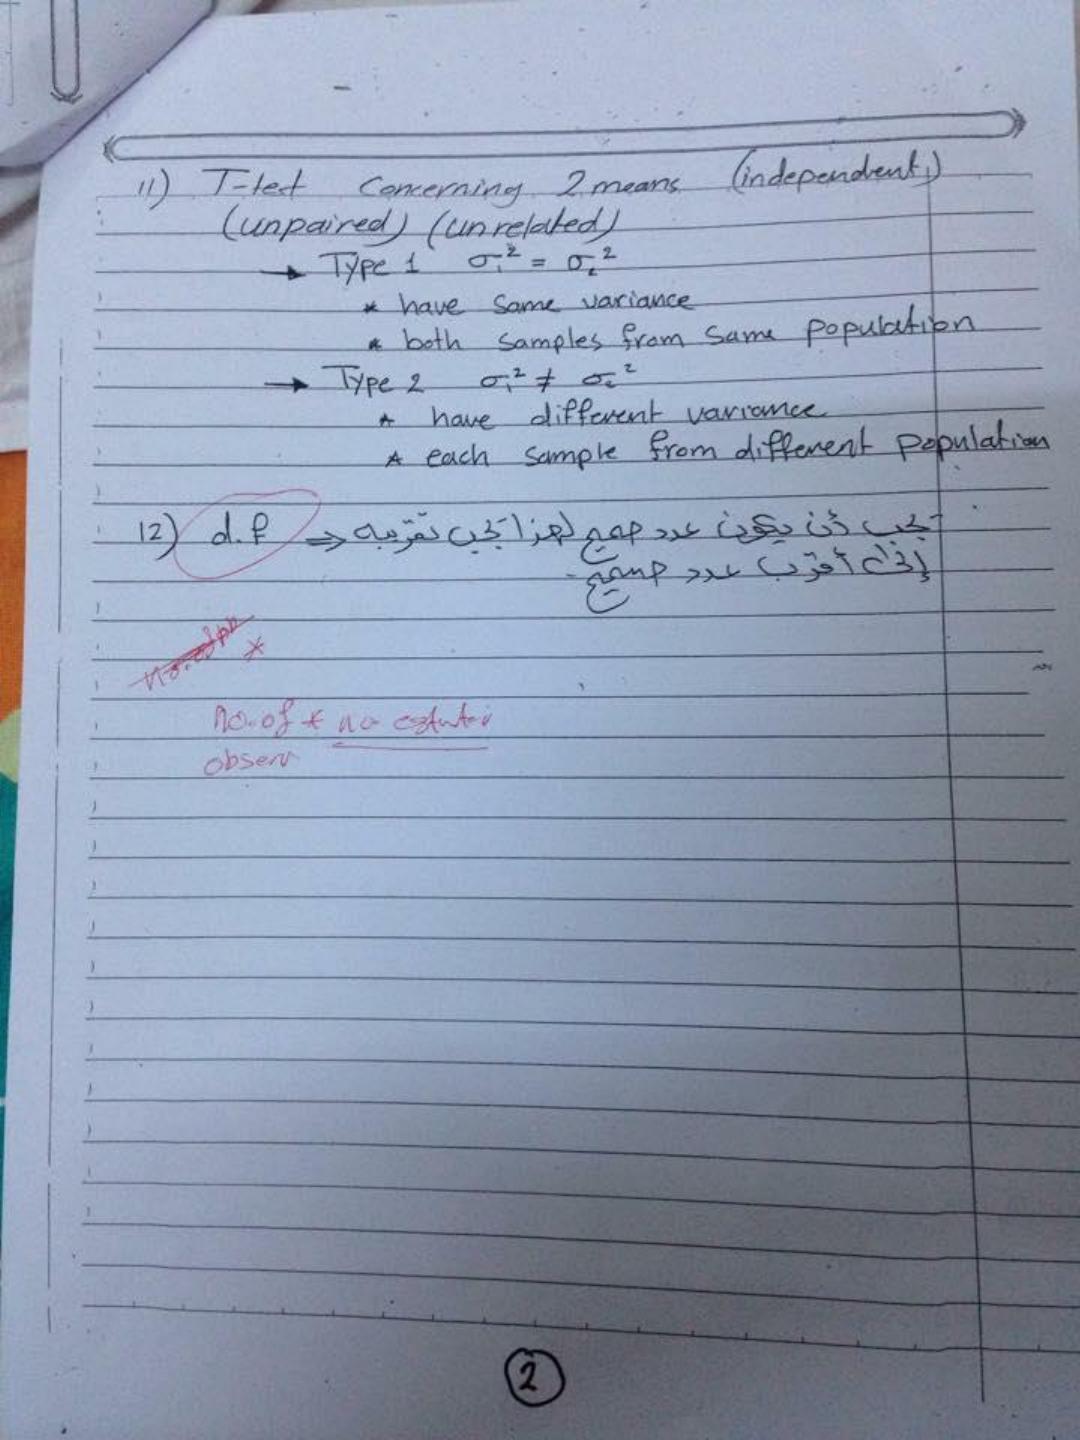 11) T-test Concerning 2 means (independent)
(unpaired) (unrelated)
→ Type 1 σ₁² = σ₂²
* have same variance
* both samples from same population
→ Type 2 σ₁² ≠ σ₂²
* have different variance
* each sample from different population
12) d.f ⇒ يجب أن يكون عدد صحيح لهذا يجب تقريبه
إلى أقرب عدد صحيح.
*
no. of * no
observ
2